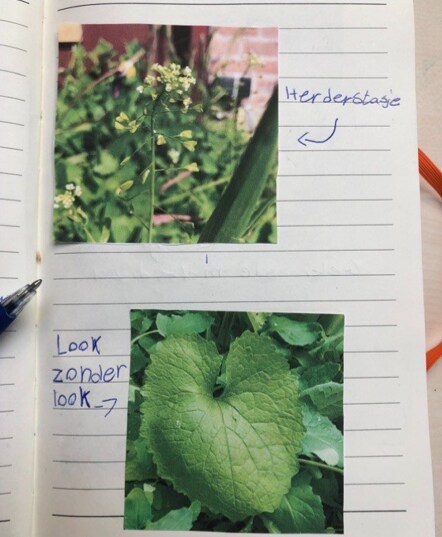 Herderstasje
Look
zonder
look